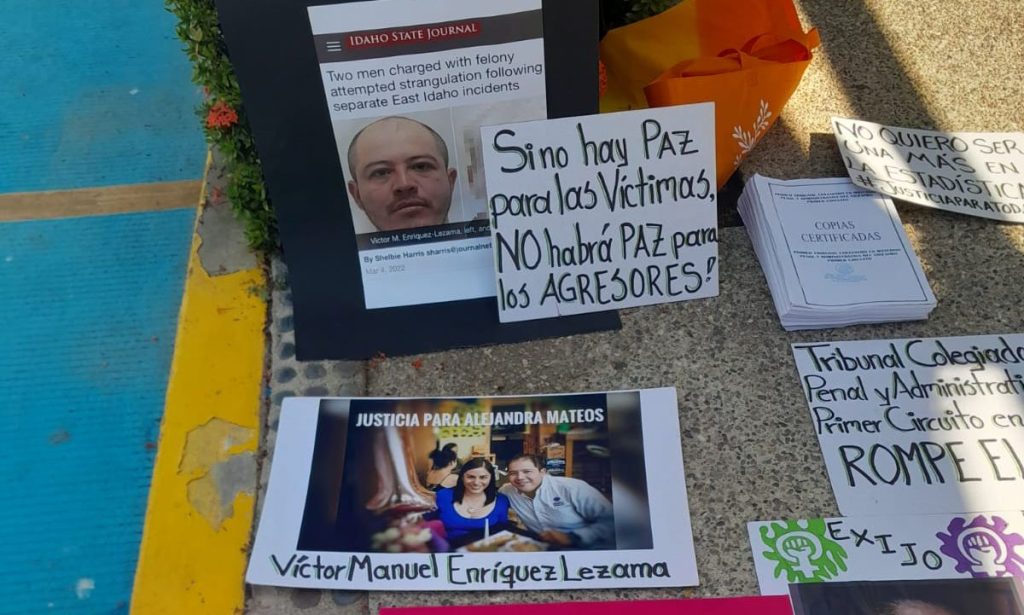 IDAHO STATE JOURNAL
Two men charged with felony
attempted strangulation following
separate East Idaho incidents
Victor M. Enriquez-Lezama, left, and
By Shelbie Harris sharris@journalnet
Mar 4, 2022
Si no hay PAZ
para las Víctimas,
NO habrá PAZ para
los AGRESORES!
NO QUIERO SER
UNA MÁS EN
LA ESTADÍSTICA
#JUSTICIAPARATODA
COPIAS
CERTIFICADAS
JUSTICIA PARA ALEJANDRA MATEOS
Víctor Manuel Enríquez Lezama
Tribunal Colegiado
Penal y Administrati
Primer Circuito en
ROMPE EL
EXIJO